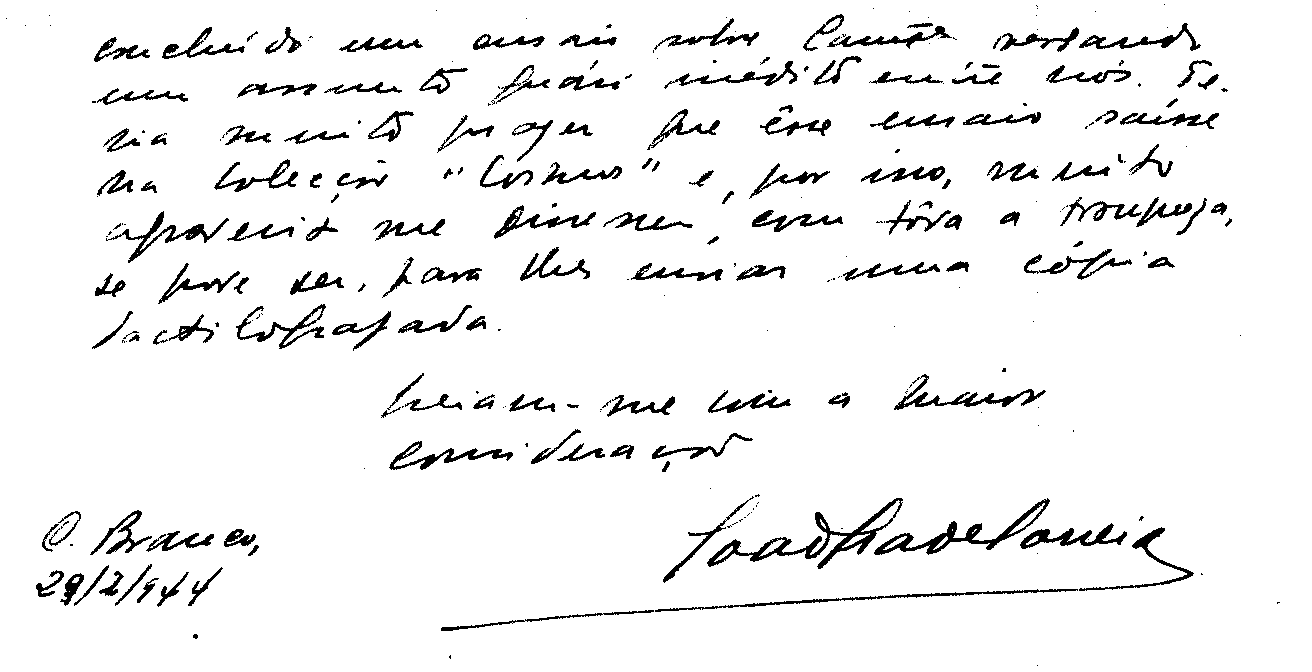 concluído um ensaio sobre Camões versando
um assunto quási inédito entre nós. Te-
ria muito prazer que êsse ensaio saísse
na Colecção "Cosmos" e, por isso, muito
me dissessem, com tôda a franqueza,
se pode ser, para lhes enviar uma cópia
dactilografada.
creiam-me com a maior
consideração
C. Branco,
29/2/944